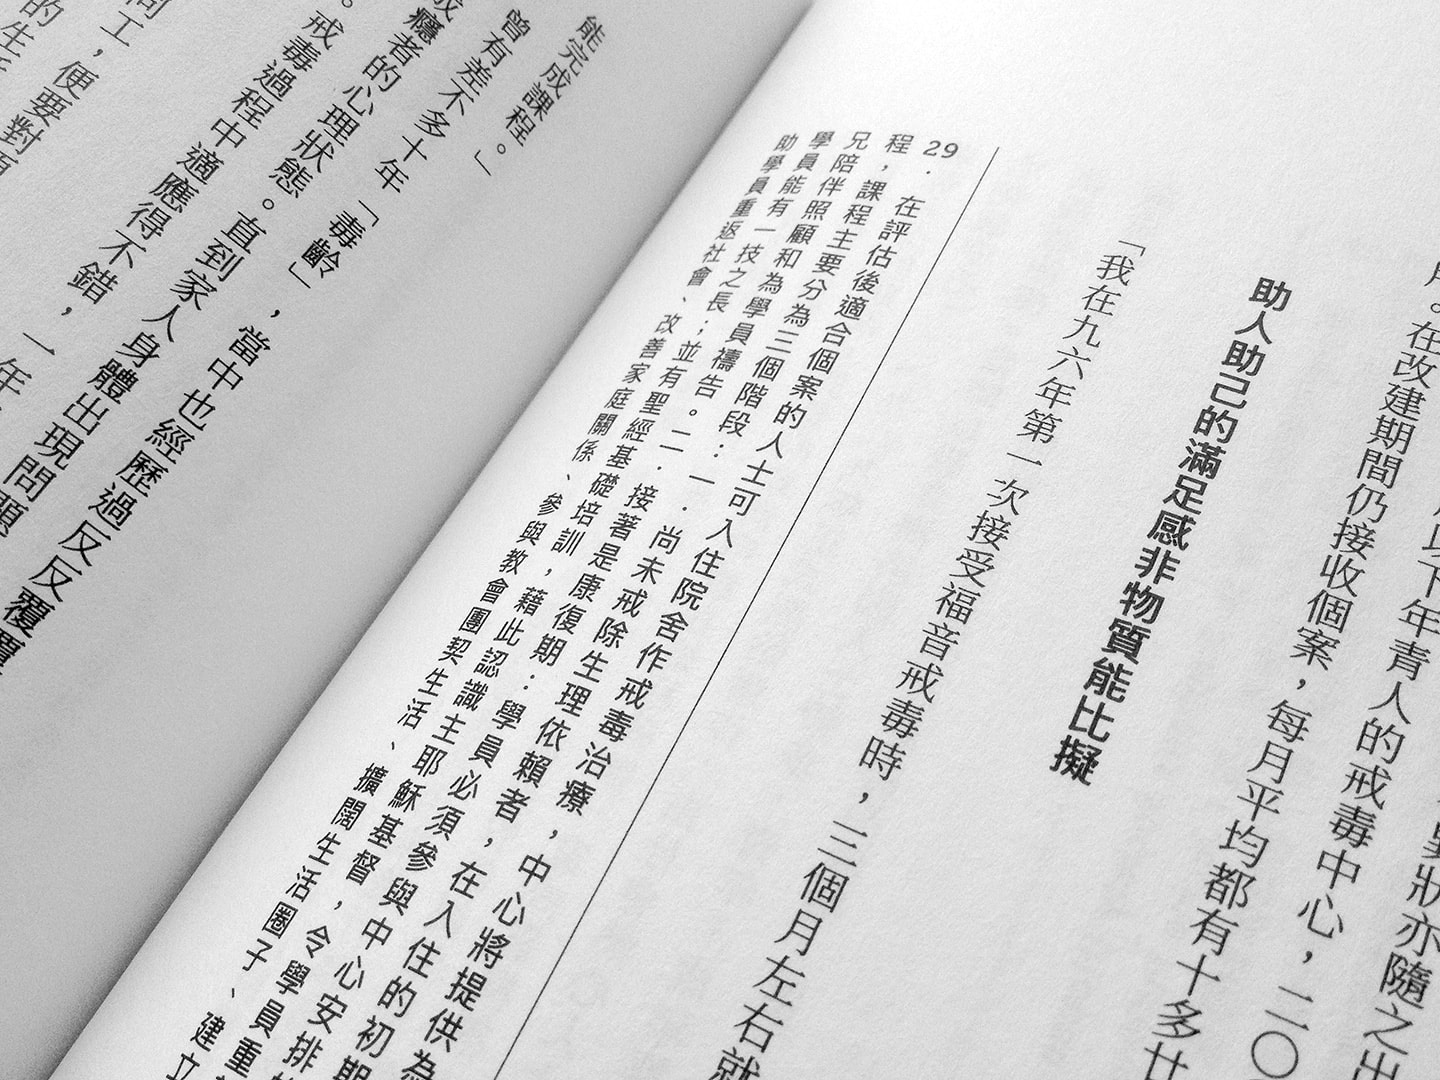 狀亦隨之出
以下年青人的戒毒中心，二〇
。在改建期間仍接收個案，每月平均都有十多廿
助人助己的滿足感非物質能比擬
「我在九六年第一次接受福音戒毒時，三個月左右就
29．在評估後適合個案的人士可入住院舍作戒毒治療，中心將提供為
程，課程主要分為三個階段：一．尚未戒除生理依賴者，在入住的初期
兄陪伴照顧和為學員禱告。二．接著是康復期：學員必須參與中心安排
學員能有一技之長；並有聖經基礎培訓，藉此認識主耶穌基督，令學員重
助學員重返社會、改善家庭關係、參與教會團契生活、擴闊生活圈子、建立
能完成課程。」
曾有差不多十年「毒齡」，當中也經歷過反反覆覆
成癮者的心理狀態。直到家人身體出現問題
。戒毒過程中適應得不錯，一年
同工，便要對
的生